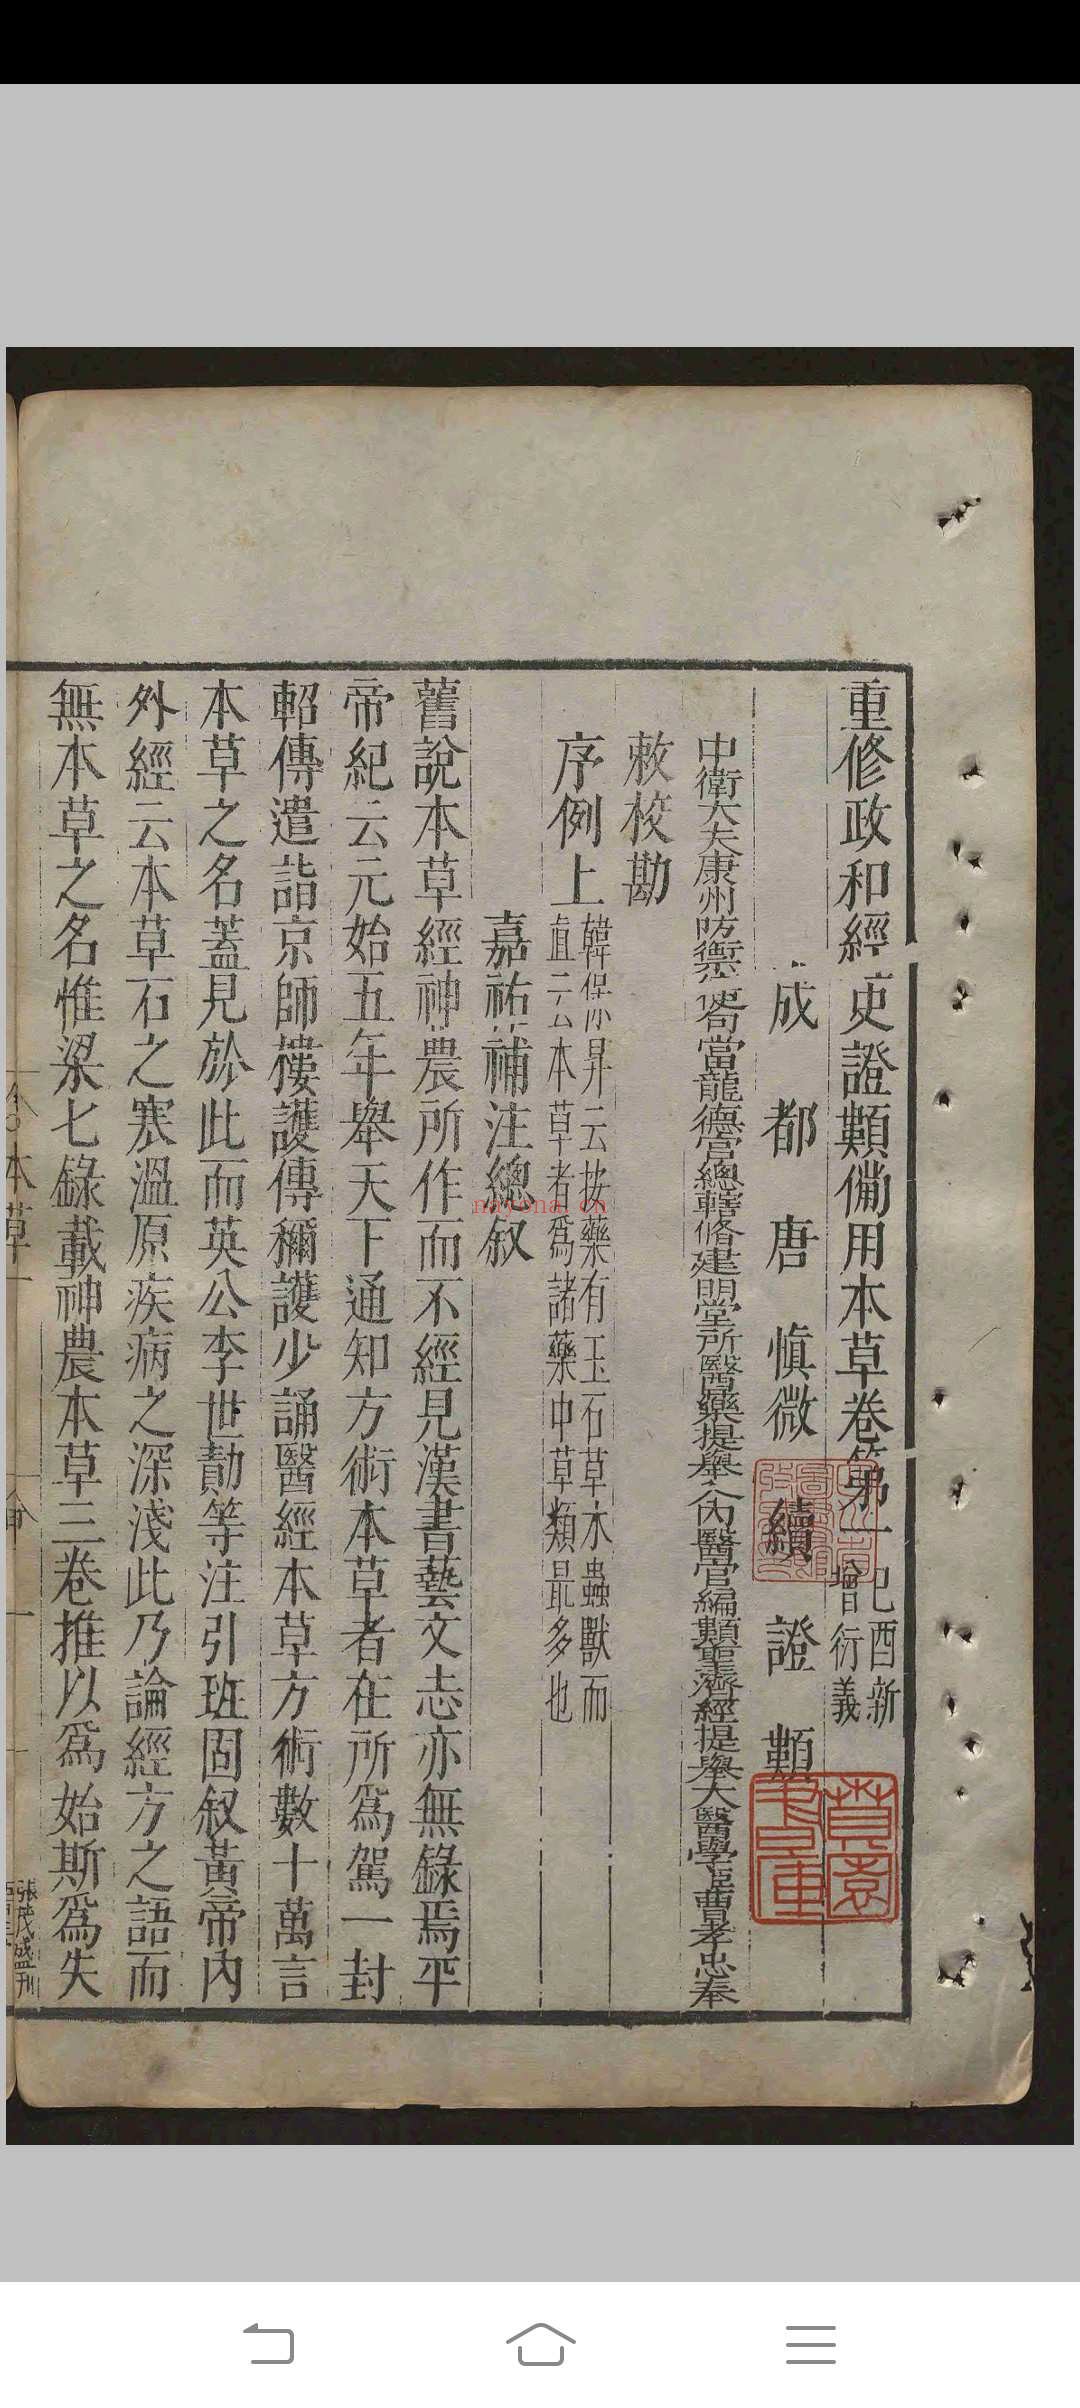 重修政和經史證類備用本草卷第一 己酉新增衍義
成都唐慎微續證類
中衛大夫康州防禦使句當龍德宮總轄修建明堂所醫藥提舉入內醫官編類聖濟經提舉大醫學臣曹孝忠奉
敕校勘
序例上 韓保昇云按藥有玉石草木蟲獸而直云本草者爲諸藥中草類最多也
嘉祐補注總叙
舊說本草經神農所作而不經見漢書藝文志亦無錄焉平
帝紀云元始五年舉天下通知方術本草者在所爲駕一封
軺傳遣詣京師樓護傳稱護少誦醫經本草方術數十萬言
本草之名蓋見於此而英公李世勣等注引班固叙黃帝內
外經云本草石之寒溫原疾病之深淺此乃論經方之語而
無本草之名惟梁七錄載神農本草三卷推以爲始斯爲失
本草一
一
張茂盛刊
nayona.cn